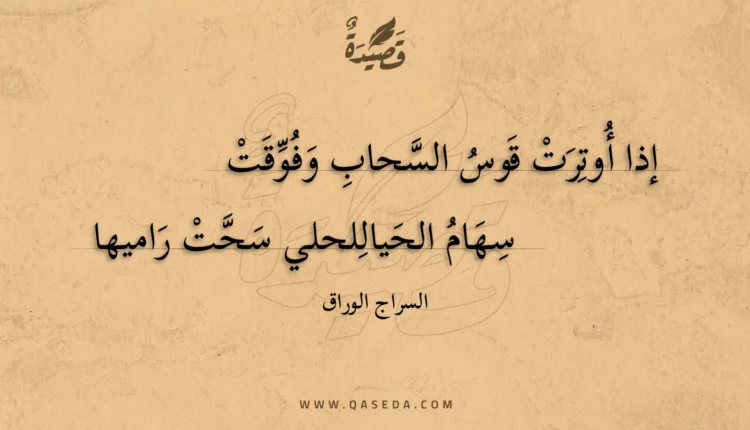 قَصِيدَةٌ
إذا أُوتِرَتْ قَوسُ السَّحابِ وَفُوِّقَتْ
سِهَامُ الحَيالِلحلي سَحَّتْ رَاميها
السراج الوراق
WWW.QASEDA.COM